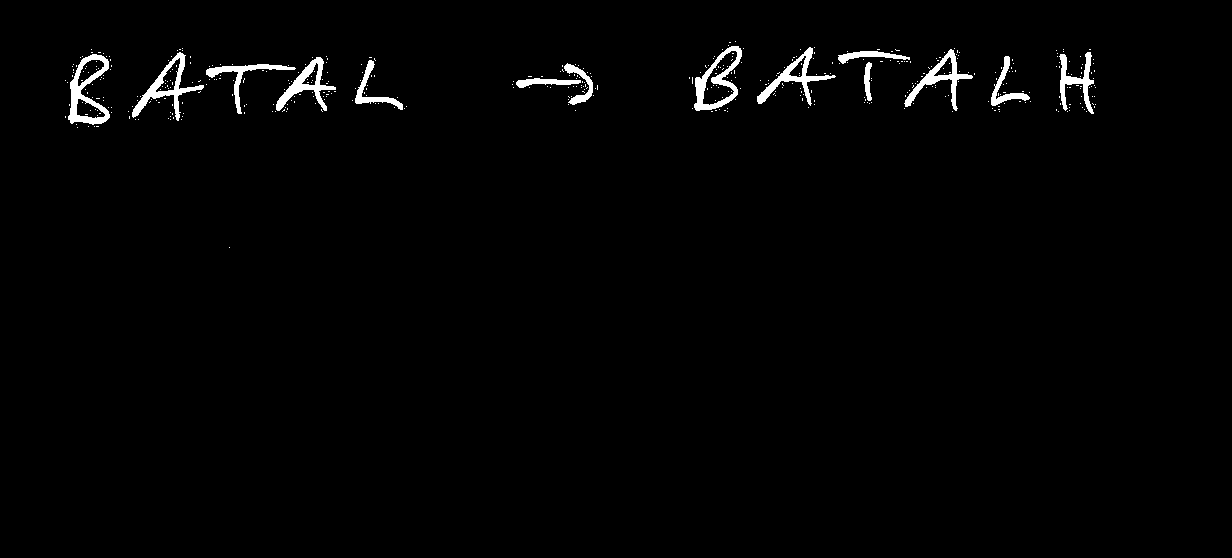 BATAL → BATALH